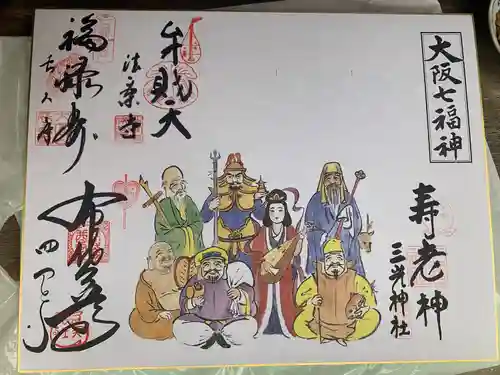 大阪七福神
寿老神
三光神社
弁財天
法案寺
福禄寿
長久寺
布袋尊
四天王寺